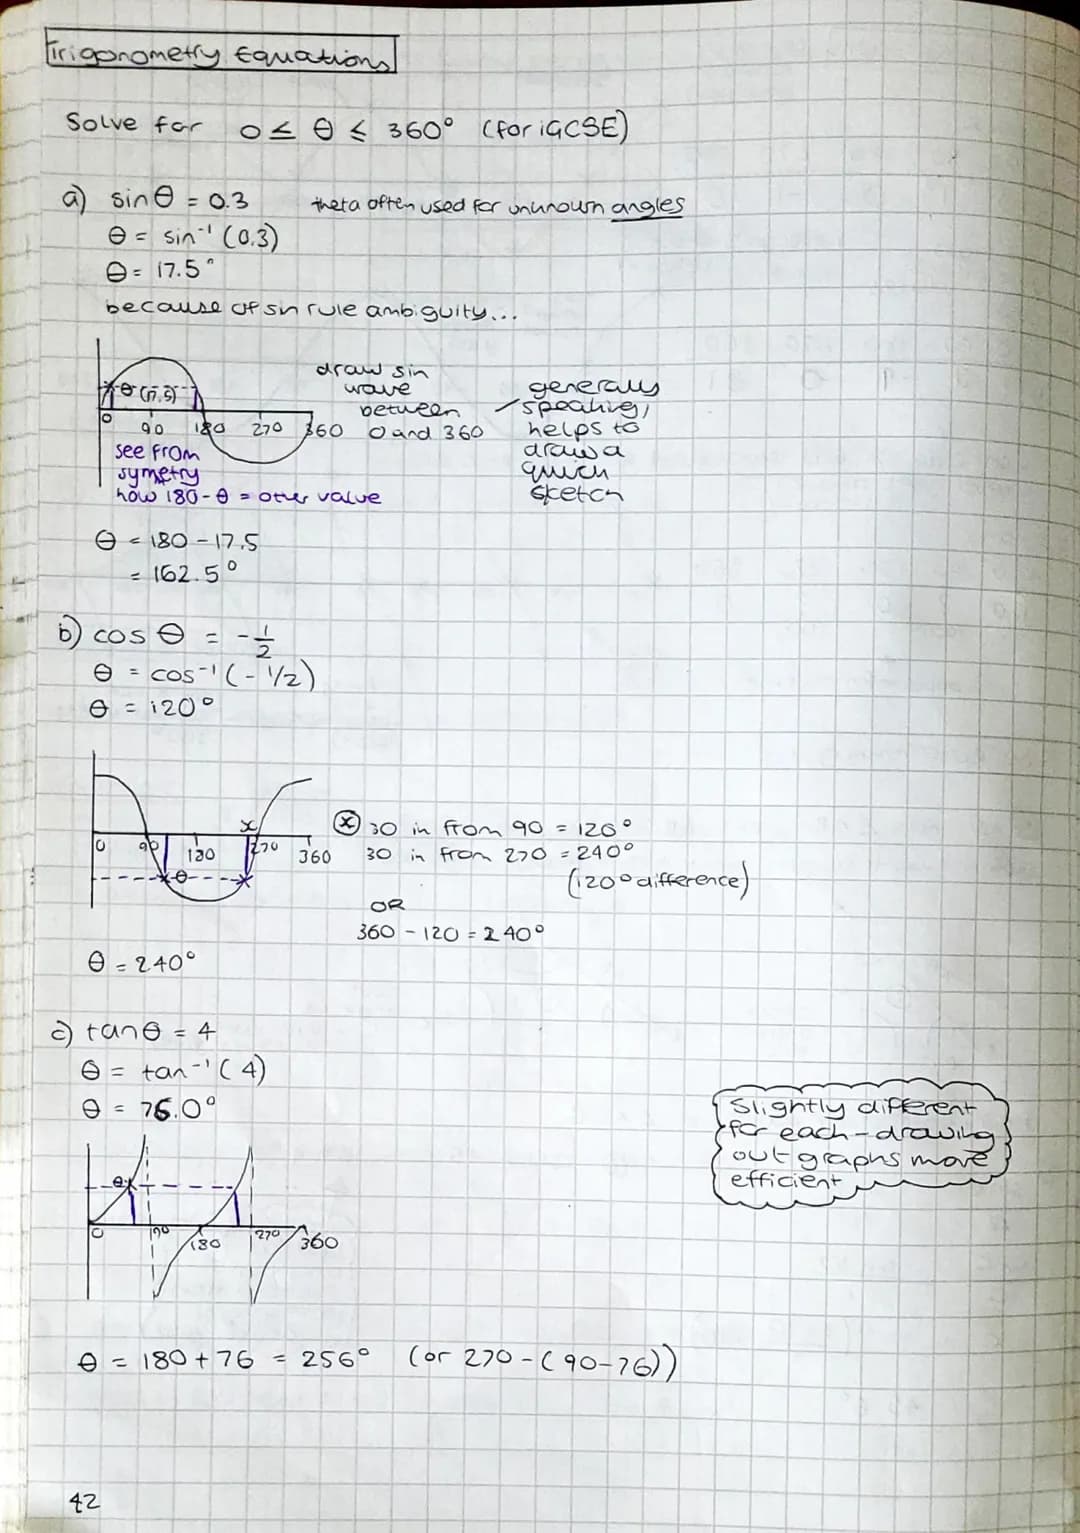 Trigonometry Equations
Solve for 0 ≤ θ ≤ 360° (for iGCSE)
a) sinθ = 0.3 theta often used for unknown angles
θ = sin⁻¹ (0.3)
θ = 17.5°
because of sin rule ambiguity...
θ (17.5)
0 90 180 270 360
draw sin
wave
between
0 and 360
generally
speaking,
helps to
draw a
quick
sketch
see from
symetry
how 180-θ = other value
θ = 180 - 17.5
= 162.5°
b) cos θ = -1/2
θ = cos⁻¹ (-1/2)
θ = 120°
x
0 90 180 270 360
θ
x 30 in from 90 = 120°
30 in from 270 = 240°
(120° difference)
OR
360 - 120 = 240°
θ = 240°
c) tanθ = 4
θ = tan⁻¹ (4)
θ = 76.0°
θ
0 90 180 270 360
Slightly different
for each - drawing
out graphs more
efficient
θ = 180 + 76 = 256° (or 270 - (90-76))
42